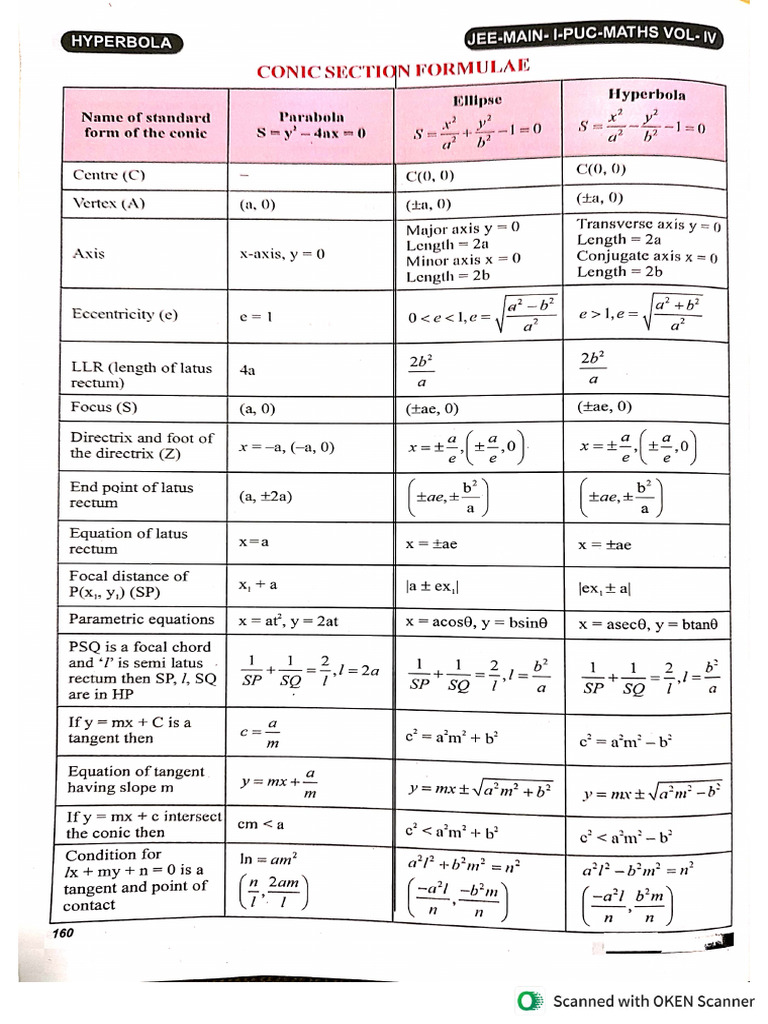 HYPERBOLA
JEE-MAIN- I-PUC-MATHS VOL- IV
CONIC SECTION FORMULAE
Name of standard form of the conic | Parabola S = y² – 4ax = 0 | Ellipse S = x²/a² + y²/b² – 1 = 0 | Hyperbola S = x²/a² – y²/b² – 1 = 0
Centre (C) | – | C(0, 0) | C(0, 0)
Vertex (A) | (a, 0) | (±a, 0) | (±a, 0)
Axis | x-axis, y = 0 | Major axis y = 0 Length = 2a Minor axis x = 0 Length = 2b | Transverse axis y = 0 Length = 2a Conjugate axis x = 0 Length = 2b
Eccentricity (e) | e = 1 | 0 < e < 1, e = √((a² – b²)/a²) | e > 1, e = √((a² + b²)/a²)
LLR (length of latus rectum) | 4a | 2b²/a | 2b²/a
Focus (S) | (a, 0) | (±ae, 0) | (±ae, 0)
Directrix and foot of the directrix (Z) | x = –a, (–a, 0) | x = ±a/e, (±a/e, 0) | x = ±a/e, (±a/e, 0)
End point of latus rectum | (a, ±2a) | (±ae, ±b²/a) | (±ae, ±b²/a)
Equation of latus rectum | x=a | x = ±ae | x = ±ae
Focal distance of P(x₁, y₁) (SP) | x₁ + a | |a ± ex₁| | |ex₁ ± a|
Parametric equations | x = at², y = 2at | x = acosθ, y = bsinθ | x = asecθ, y = btanθ
PSQ is a focal chord and ‘l’ is semi latus rectum then SP, l, SQ are in HP | 1/SP + 1/SQ = 2/l, l = 2a | 1/SP + 1/SQ = 2/l, l = b²/a | 1/SP + 1/SQ = 2/l, l = b²/a
If y = mx + C is a tangent then | c = a/m | c² = a²m² + b² | c² = a²m² – b²
Equation of tangent having slope m | y = mx + a/m | y = mx ± √(a²m² + b²) | y = mx ± √(a²m² – b²)
If y = mx + c intersect the conic then | cm < a | c² < a²m² + b² | c² < a²m² – b²
Condition for lx + my + n = 0 is a tangent and point of contact | ln = am² (n/l, 2am/l) | a²l² + b²m² = n² (–a²l/n, –b²m/n) | a²l² – b²m² = n² (–a²l/n, b²m/n)
160
Scanned with OKEN Scanner